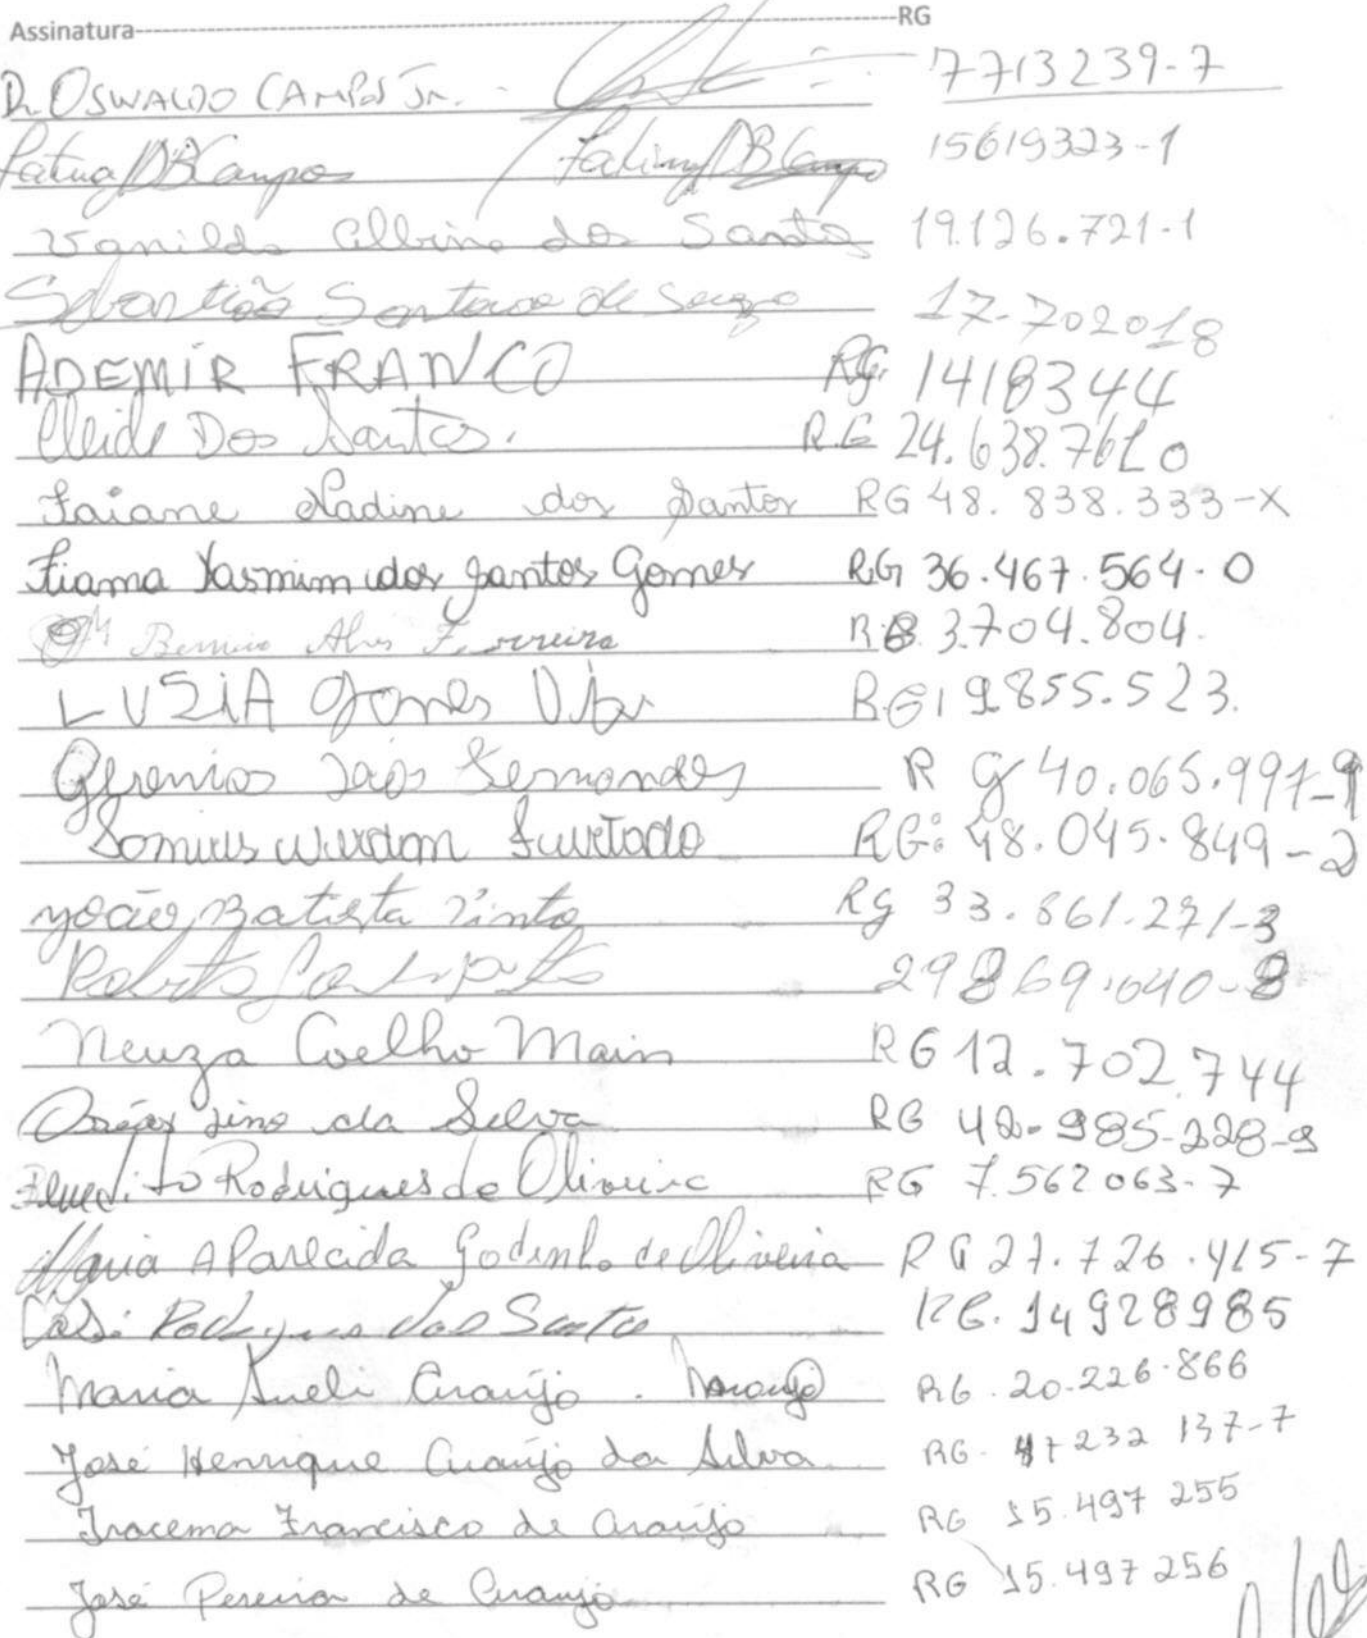 Assinatura RG
Dr. OSWALDO CAMPOS Jr. 7713239-7
Fatima DB Campos Fatima DB Campos 15619323-1
Vanilda Albino dos Santos 19.126.721-1
Sebastião de Souza 17-702018
ADEMIR FRANCO RG. 1418344
Cleide Dos Santos. R.G 24.638.761 0
Taiane Nadine dos Santos RG 48. 838.333-X
Tiama Yasmim dos Santos Gomes RG 36.467.564-0
Alves Ferreira RG 3.704.804.
LUZIA Gomes R.G 19.855.523.
Fernandes R G 40.065.991-9
Furtado RG: 48.045.849-2
João Batista Pinto Rg 33.861.271-3
Roberto 29869.040-8
Neuza Coelho RG 12.702.744
Lino da Silva RG 42-985-228-9
Benedito Rodrigues de Oliveira RG 7.562063-7
Maria APareCida Godinho de Oliveira RG 27.726.415-7
José Rodrigues dos Santos RG. 14928985
Maria Sueli Araújo. RG. 20.226.866
José Henrique Araújo da Silva RG. 47 232 137-7
Iracema Francisco de Araújo RG 15.497 255
José Pereira de Araujo RG 15.497 256